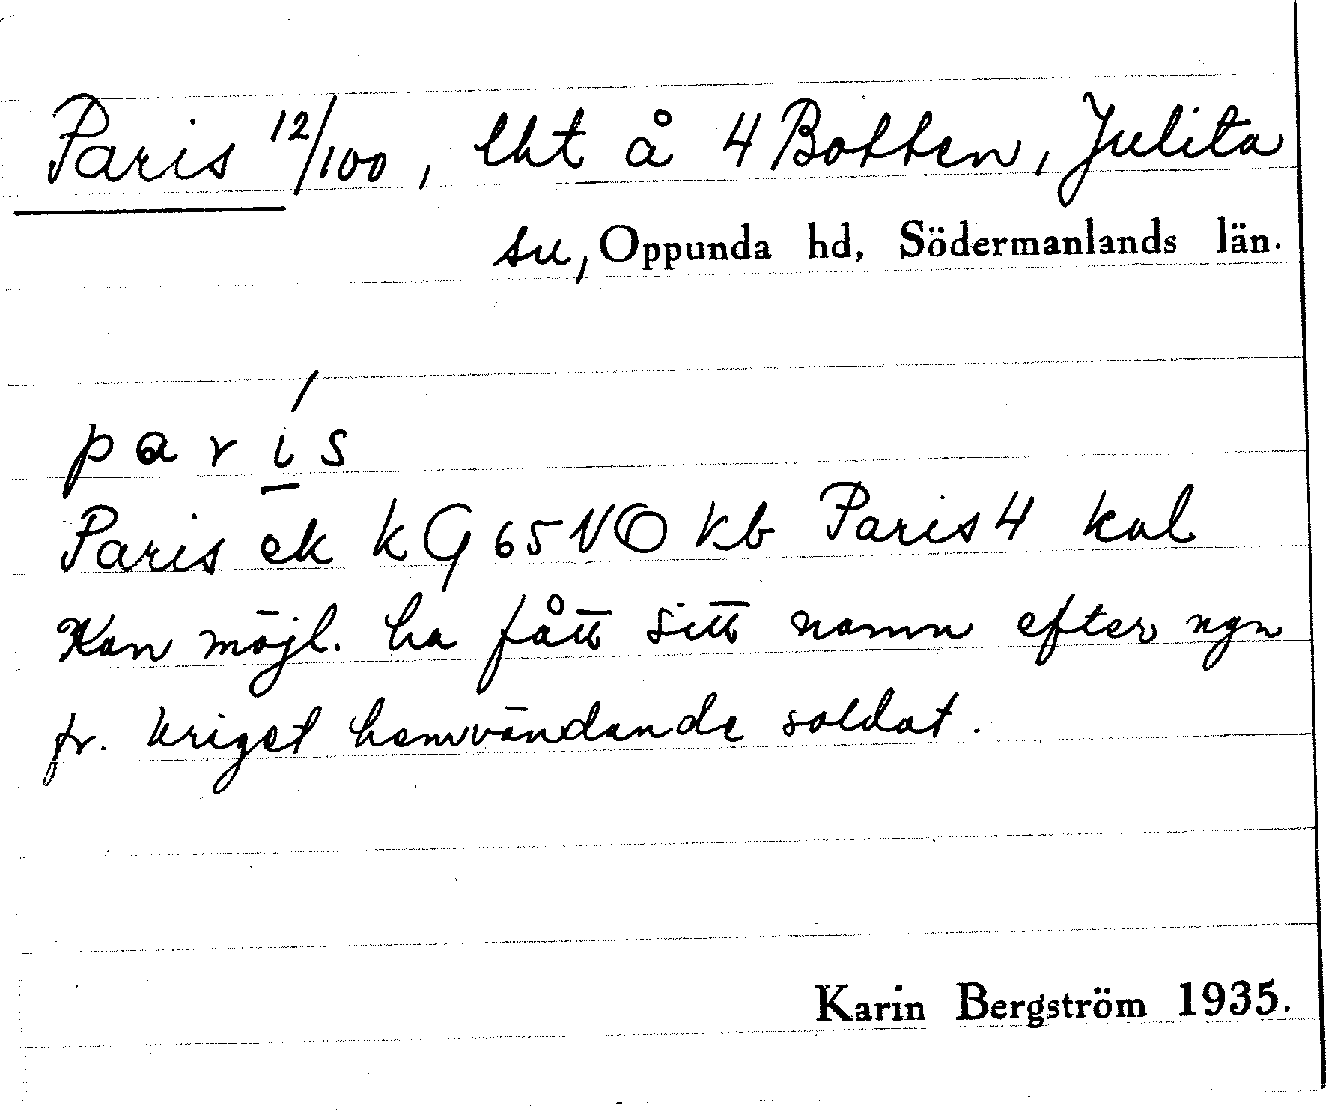 Paris 12/100, lht å 4 Botten, Julita
su, Oppunda hd, Södermanlands län.
parís
Paris ek kG 65 NO kb Paris 4 kal
Kan möjl. ha fått sitt namn efter ngn
fr. kriget hemvändande soldat.
Karin Bergström 1935.